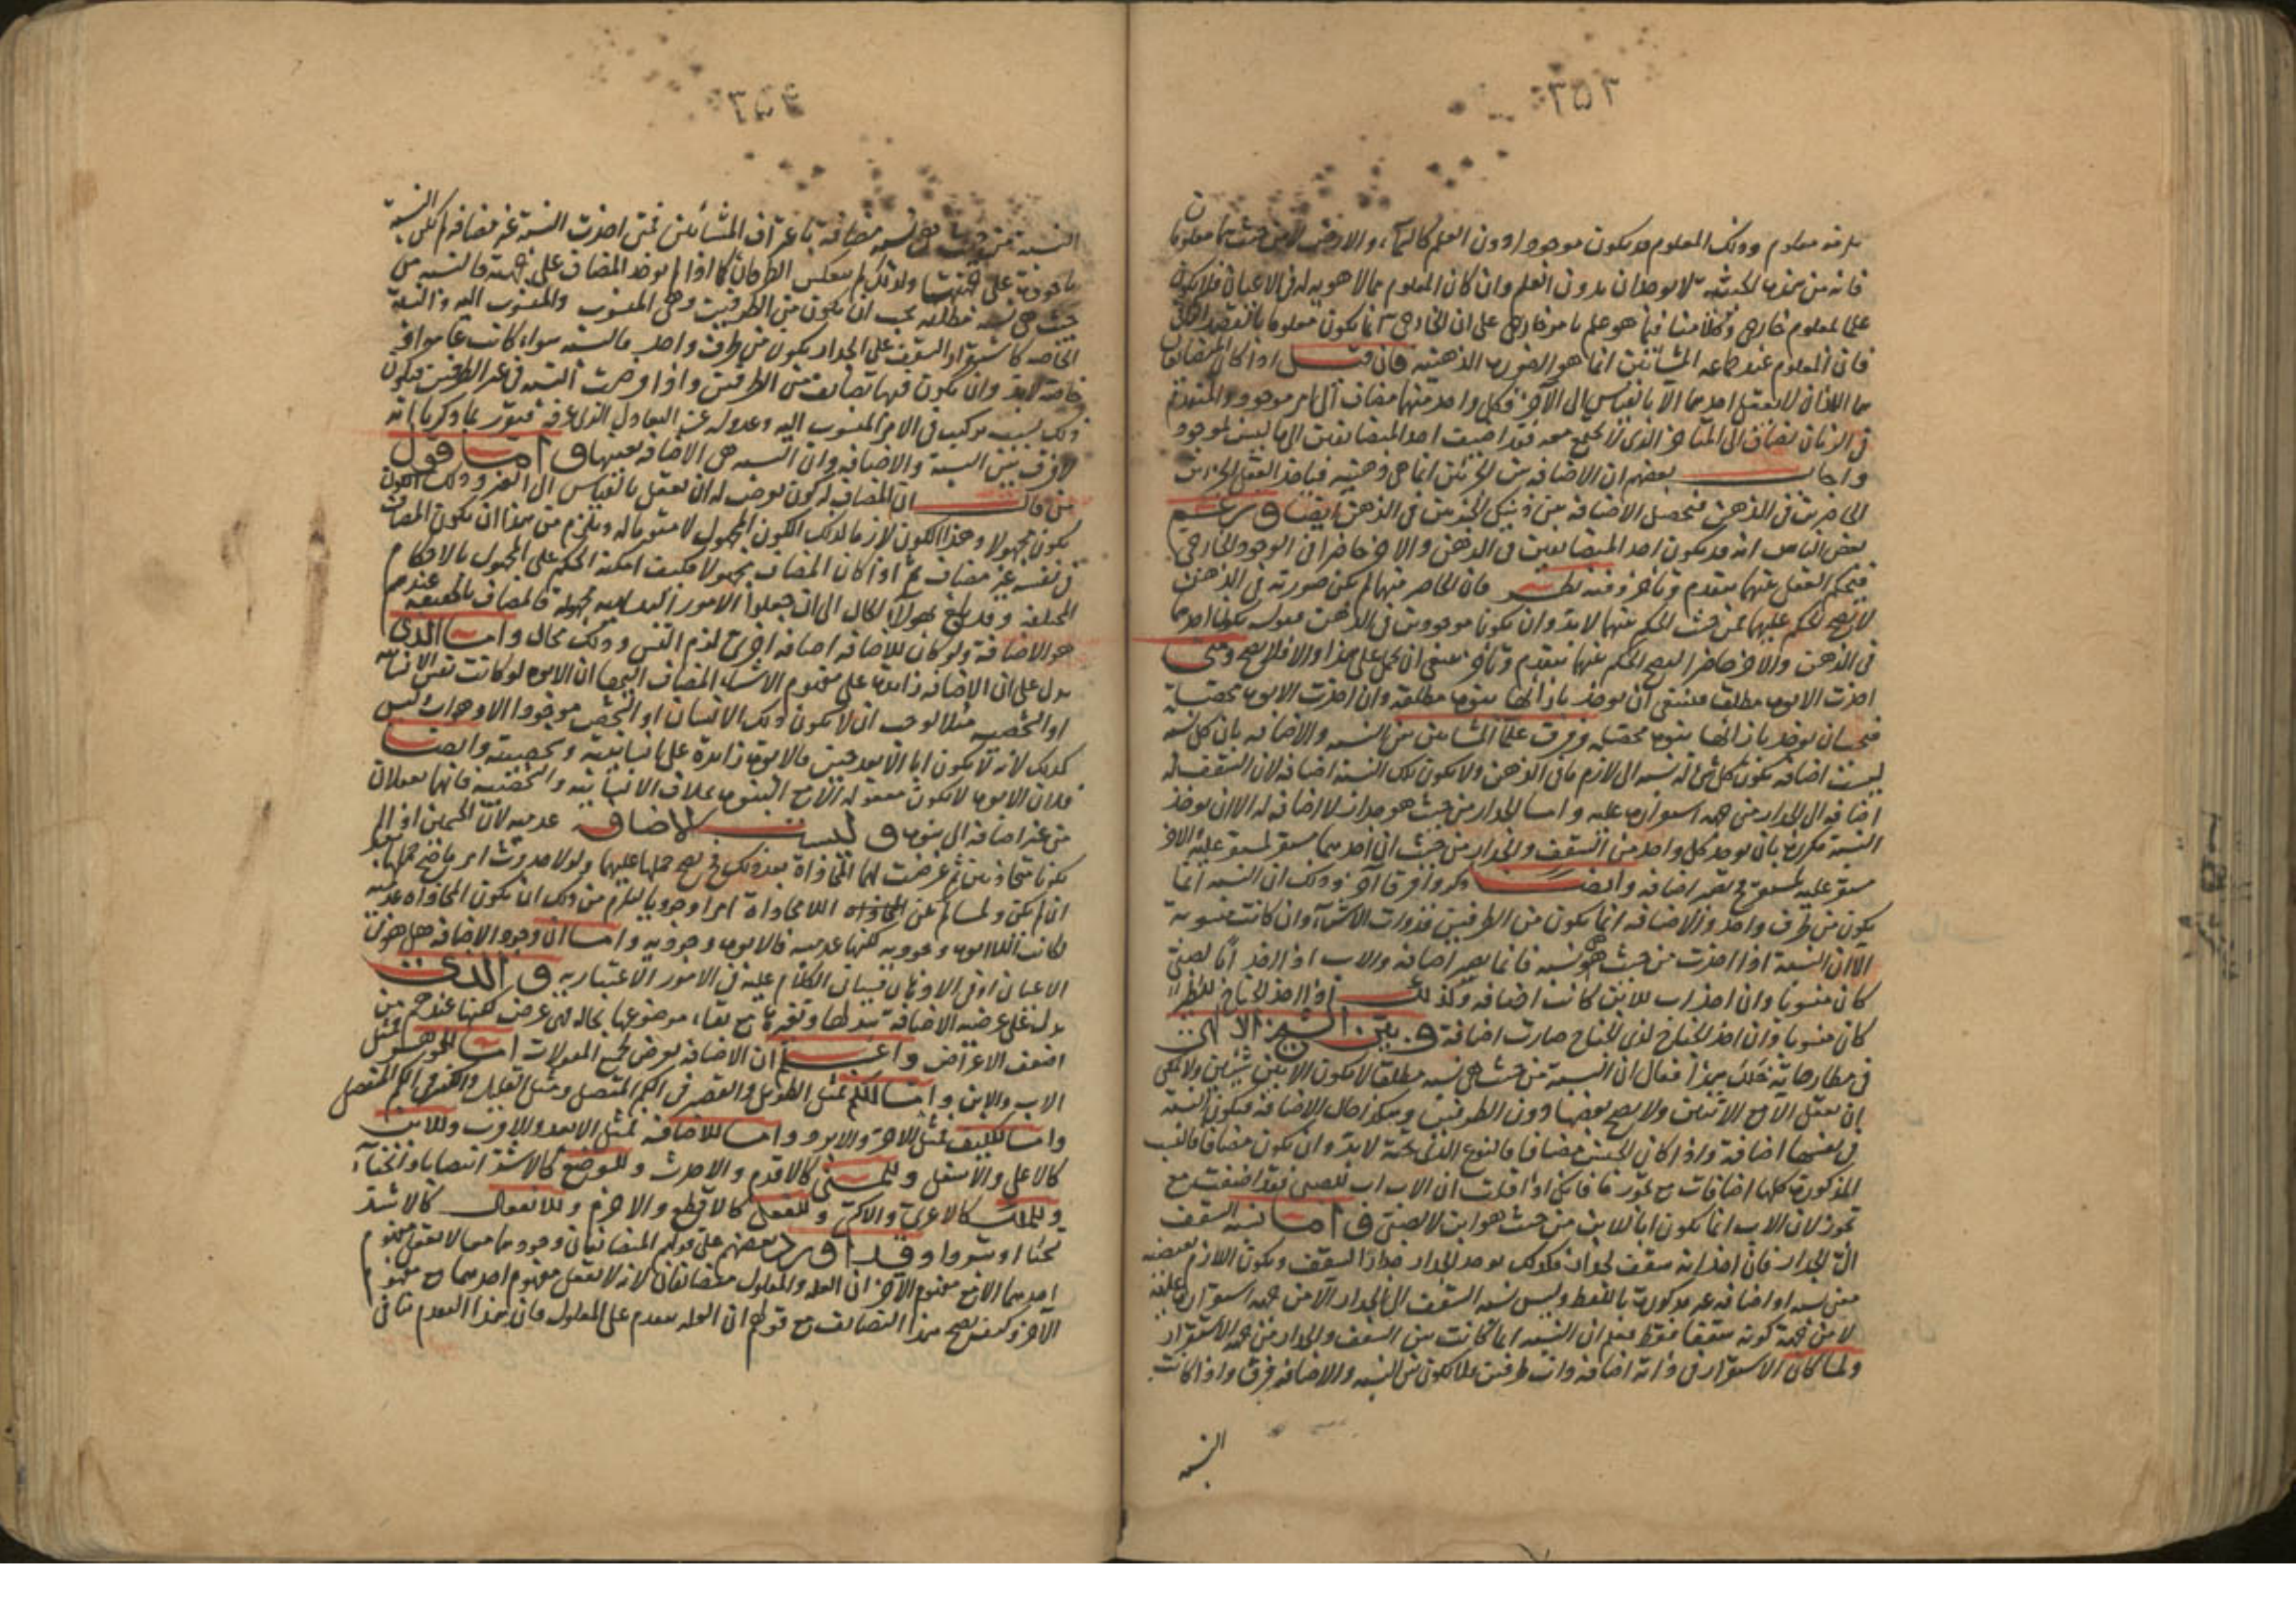 ٢٥٢
يلزمه معلوم وذلك المعلوم قد يكون موجودا دون العلم كالسماء والارض لا من حيث هما معلومان
فانه من هذه الحيثية لا يوجدان بدون العلم وان كان المعلوم مما لا هوية له في الاعيان فلا يكون
علما لمعلوم خارجي وكلامنا فيما هو علم بامر خارجي على ان الخارجي انما يكون معلوما بالقصد الثاني
فان المعلوم عند جماعه المشائين انما هو الصورة الذهنيه فان قيل اذا كان المتضايفان
هما اللذان لا يعقل احدهما الا بالقياس الى الآخر فكل واحد منهما مضاف الى امر موجود والمتقدم
في الزمان مضاف الى المتاخر الذي لا يجتمع معه فقد اضيف احد المتضايفين الى ما ليس بموجود
واجاب بعضهم ان الاضافه بين الجزئين انما هي ذهنيه فياخذ العقل الجزئين
الحاضرين في الذهن فتحصل الاضافه بين ذينك الجزئين في الذهن ايضا وزعم
بعض الناس انه قد يكون احد المتضايفين في الذهن والاخر حاضرا في الوجود الخارجي
فيحكم العقل عليهما بتقدم وتأخر وفيه نظر فان الحاضر منهما لم يكن صورته في الذهن
لا يصح الحكم عليهما فمن حيث الحكم عليهما لابد وان يكونا موجودين في الذهن فقوله احدهما
في الذهن والاخر حاضر ليصح الحكم عليهما بتقدم وتأخر ينبغي ان يحمل على هذا والا فلا يصح ومتى
اخذت الابوة مطلقة فينبغي ان يوخذ بازائها بنوة مطلقة وان اخذت الابوة محصلة
فيجب ان يوخذ بازائها بنوة محصلة وفرق علماء المشائين بين النسبه والاضافه بان كل نسبة
ليست اضافه بكون كل شئ له نسبه الى لازم ما في الذهن ولا يكون تلك النسبة اضافه لان السقف له
اضافه الى الجدار من جهه استقراره عليه واما الجدار من حيث هو جدار لا اضافه له الا ان يوخذ
النسبة مكررة بان يوخذ كل واحد من السقف والجدار من حيث ان احدهما مستقر لمستقر عليه والاخر
مستقر عليه لمستقر فح تصير اضافه وايضا ذكروا فرقا آخر وذلك ان النسبه انما
يكون من طرف واحد والاضافه انما يكون من الطرفين فذوات الاشياء وان كانت منسوبة
الا ان النسبة اذا اخذت من حيث هي نسبه فانما يصير اضافه والاب اذا اخذ ابا لصبي
كان منسوبا وان اخذ اب للابن كانت اضافه وكذلك اذا اخذ الجناح للطير
كان منسوبا وان اخذ الجناح لذي الجناح صارت اضافة وبين الشيخ الالهي
في مطارحاته خلل هذا فقال ان النسبة من حيث هي نسبه مطلقا لا يكون الا بين شيئين ولا يمكن
ان تعقل الا مع الاثنين ولا يصح بعضها دون الطرفين وهكذا حال الاضافة فيكون النسبة
في نفسها اضافة واذا كان الجنس مضافا فالنوع الذي تحته لابد وان يكون مضافا فالنسب
المذكورة كلها اضافات مع تجوز ما فانك اذا قلت ان الاب اب لصبي فقد اضفت مع
تجوز لان الاب انما يكون ابا للابن من حيث هو ابن لا لصبي واما نسبه السقف
الى الجدار فان اخذ انه سقف لجدار فكذلك يوخذ الجدار جدارا لسقف ويكون اللازم
معنى نسبه او اضافه غير مذكورة باللفظ وليس نسبه السقف الى الجدار الا من جهه استقراره عليه
لا من جهة كونه سقفا فقط فعلم ان النسبه انما كانت بين السقف والجدار من جهه الاستقرار
ولما كان الاستقرار في ذاته اضافه ذات طرفين فلا يكون بين النسبه والاضافه فرق واذا كانت
النسبه
٢٥٣
النسبة من حيث هي نسبه مضافة باعتراف المشائين فمتى اخذت النسبة غير مضافه لم تكن النسبة
ماخوذة على جهتها ولذلك لم ينعكس الطرفان كما اذا لم يوخذ المضاف على جهته فالنسبه من
حيث هي نسبه مطلقه يجب ان يكون من الطرفين وهي المنسوب والمنسوب اليه والنسبة
الخاصه كاستقرار السقف على الجدار يكون من طرف واحد فالنسبه سواء كانت عامه او
خاصة لابد وان يكون فيها تضايف من الطرفين واذا وجدت النسبه في غير الطرفين فيكون
ذلك بسبب تركيب في الامر المنسوب اليه وعدوله عن التعادل الذي عرفته فتقرر بما ذكرناه انه
لا فرق بين النسبة والاضافه وان النسبه هي الاضافه بعينها واما قول
من قال ان المضاف له كون يعرض له ان يعقل بالقياس الى الغير وذلك الكون
يكون مجهولا وهذا الكون لازما لذلك الكون المجهول لا مقوما له ويلزم من هذا ان يكون المضاف
في نفسه غير مضاف ثم اذا كان المضاف مجهولا فكيف امكنه الحكم على المجهول بالاحكام
المختلفه وقد بلغ بهؤلاء الحال الى ان جعلوا الامور البديهيه مجهوله فالمضاف بالحقيقه عندهم
هو الاضافة ولو كان للاضافه اضافه اخرى لزم التس وذلك محال واما الذي
يدل على ان الاضافه زائدة على مفهوم الاشياء المضاف اليها ان الابوه لو كانت نفس الانسانيه
او الشخصيه مثلا لوجب ان لا يكون ذلك الانسان او الشخص موجودا الا وهو اب وليس
كذلك لانه لا يكون ابا الا بعد حين فالابوة زائدة على انسانيته وشخصيته وايضا
فلان الابوة لا يكون معقوله الا مع البنوه بخلاف الانسانيه والشخصيه فانهما يعقلان
من غير اضافه الى بنوة وليست الاضافه عدميه لان الجسمين اذا لم
يكونا متحاذيين ثم عرضت لهما المحاذاة بعد ذلك فح يصح حملها عليهما ولولا حدوث امر ما صح حملها بعد
ان لم يكن ولما لم يكن المحاذاة اللا محاذاة امرا وجوديا فيلزم من ذلك ان يكون المحاذاة عدميه
لكانت اللاابوه وجوديه لكنها عدميه فالابوه وجوديه واما ان وجود الاضافه هل هو في
الاعيان او في الاذهان فسياتي الكلام عليه في الامور الاعتباريه والذي
يدل على عرضيه الاضافة تبدلها وتغيرها مع بقاء موضوعها بحاله فهي عرض لكنها عندهم من
اضعف الاعراض واعلم ان الاضافه يعرض لجميع المقولات اما للجوهر فمثل
الاب والابن واما للكم فمثل الطويل والقصير في الكم المتصل ومثل القليل والكثير في الكم المنفصل
واما للكيف فمثل الاحر والابرد واما للاضافه فمثل الابعد والاقرب وللاين
كالاعلى والاسفل وللمتى كالاقدم والاحدث وللوضع كالاشد انتصابا وانحناء
وللملك كالاعرى والاكسى وللفعل كالاقطع والاخرم وللانفعال كالاشد
تسخنا او تبردا وقد اورد بعضهم على قولهم المتضايفان وجودهما معا لا يعقل مفهوم
احدهما الا مع مفهوم الآخر ان العله والمعلول متضايفان لانه لا يعقل مفهوم احدهما مع مفهوم
الآخر وكيف يصح هذا التضايف مع قولهم ان العله متقدم على المعلول فان هذا التقدم ينافي